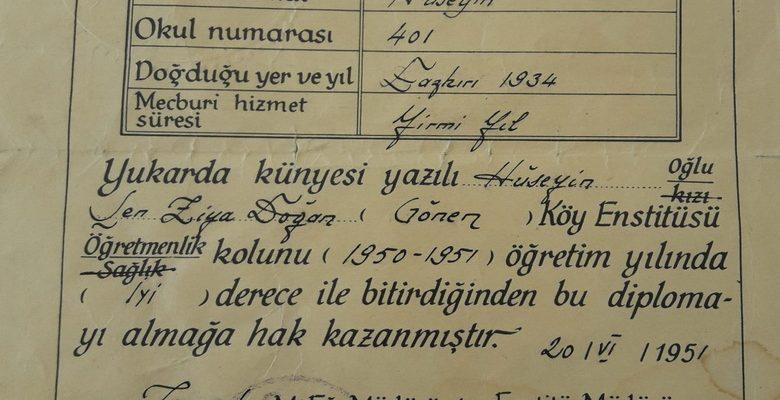 Hüseyin
Okul numarası 401
Doğduğu yer ve yıl Tazkırı 1934
Mecburi hizmet süresi Yirmi Yıl
Yukarda künyesi yazılı Hüseyin Oğlu kızı
Şen Ziya Doğan ( Gönen ) Köy Enstitüsü
Öğretmenlik Sağlık kolunu ( 1950-1951 ) öğretim yılında
( İyi ) derece ile bitirdiğinden bu diploma-
yı almağa hak kazanmıştır. 20 / VI / 1951